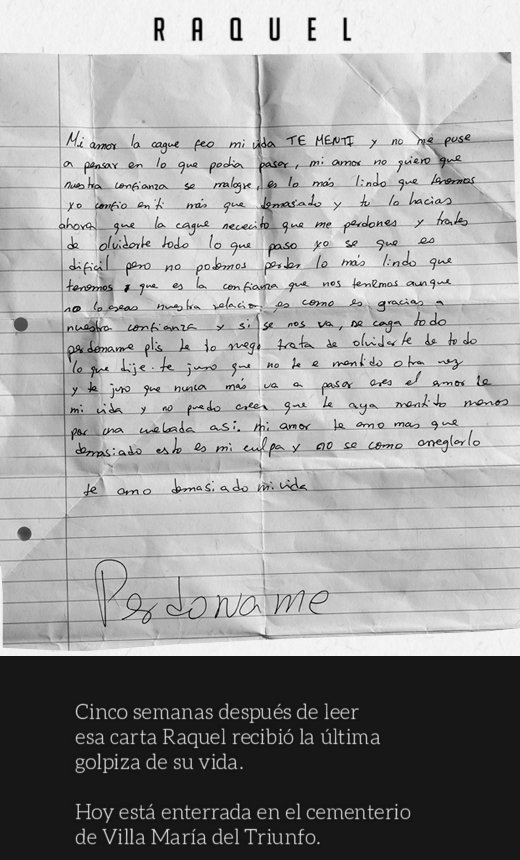 RAQUEL
Mi amor la cague feo mi vida TE MENTI y no me puse
a pensar en lo que podia pasar, mi amor no quiero que
nuestra confianza se malogre, es lo más lindo que tenemos
yo confio en ti más que demasiado y tu lo hacias
ahora que la cague nececito que me perdones y trates
de olvidarte todo lo que paso yo se que es
dificil pero no podemos perder lo más lindo que
tenemos y que es la confianza que nos tenemos aunque
no lo creas nuestra relacion es como es gracias a
nuestra confianza y si se nos va, se caga todo
perdoname plis te lo ruego trata de olvidarte de todo
lo que dije. te juro que no te e mentido otra vez
y te juro que nunca más va a pasar eres el amor de
mi vida y no puedo creer que te aya mentido menos
por una webada asi. mi amor te amo mas que
demasiado esto es mi culpa y no se como arreglarlo
te amo demasiado mi vida
Perdoname
Cinco semanas después de leer
esa carta Raquel recibió la última
golpiza de su vida.
Hoy está enterrada en el cementerio
de Villa María del Triunfo.